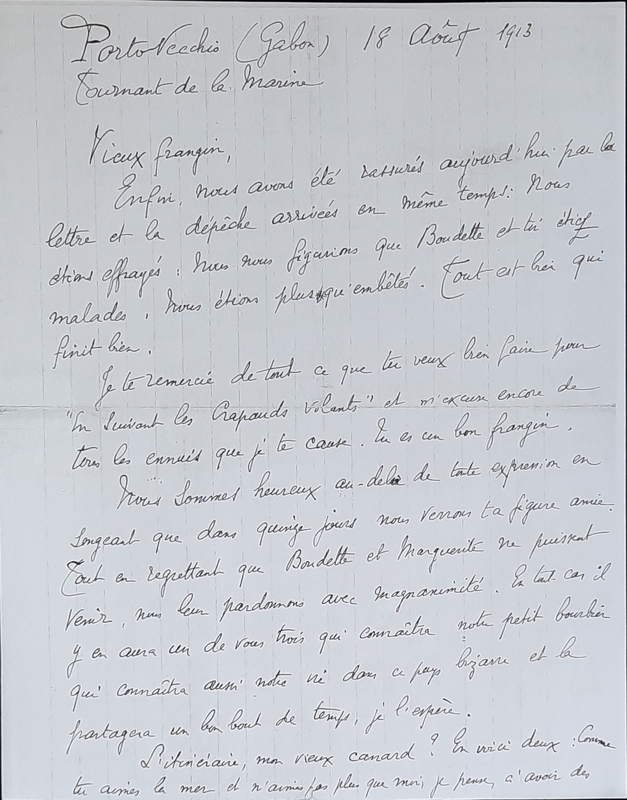 Porto-Vecchio (Gabon) 18 Août 1913
Tournant de la Marine
Vieux frangin,
Enfin, nous avons été rassurés aujourd'hui par la
lettre et la dépêche arrivées en même temps. Nous
étions effrayés : Nous nous figurions que Boudette et toi étiez
malades. Nous étions plus qu'embêtés. Tout est bien qui
finit bien.
Je te remercie de tout ce que tu veux bien faire pour
"En Suivant les Crapauds Volants" et m'excuse encore de
tous les ennuis que je te cause. Tu es un bon frangin.
Nous sommes heureux au-delà de toute expression en
songeant que dans quinze jours nous verrons ta figure amie.
Tout en regrettant que Boudette et Marguerite ne puissent
venir, nous leur pardonnons avec magnanimité. En tout cas il
y en aura un de vous trois qui connaîtra notre petit bourbier
qui connaîtra aussi notre vie dans ce pays bizarre et la
partagera un bon bout de temps, je l'espère.
L'itinéraire, mon vieux canard ? En voici deux : Comme
tu aimes la mer et n'aimes pas plus que moi, je pense, à avoir des